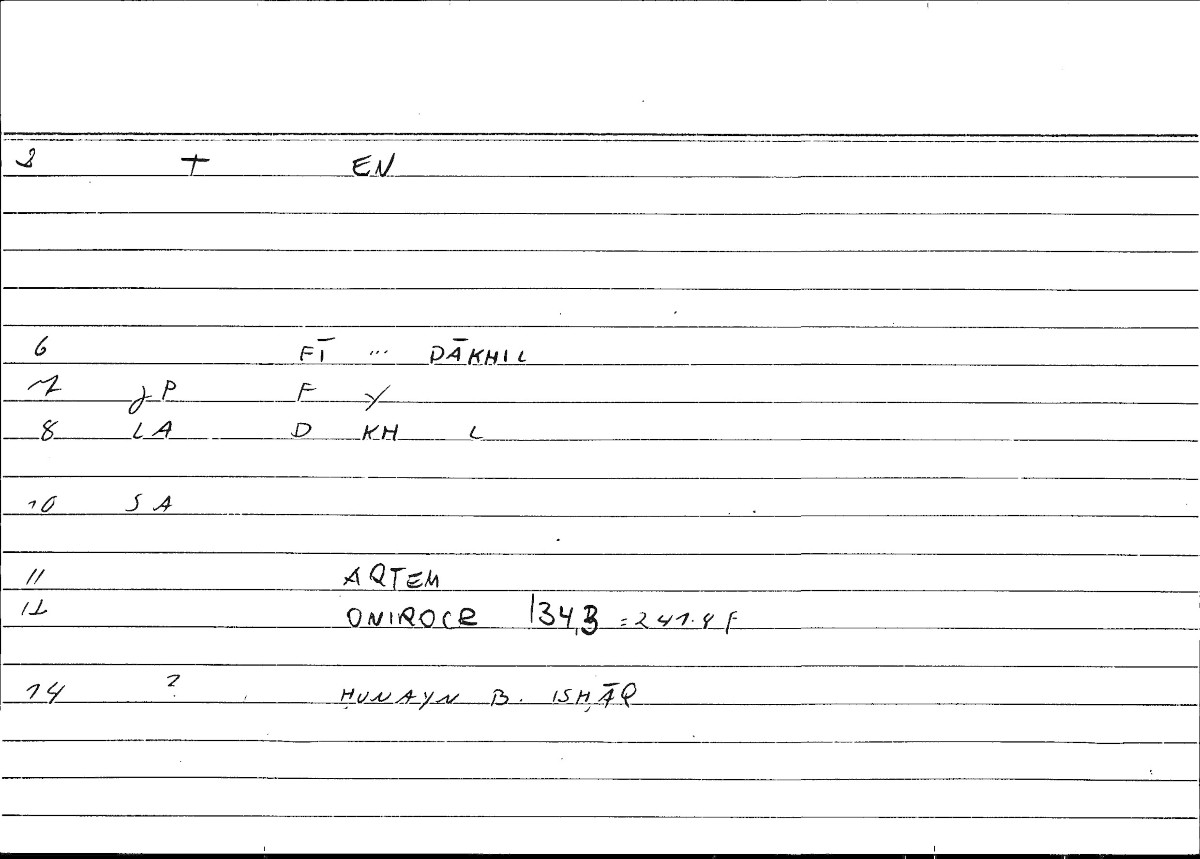 3 + EN
6 FĪ ... DĀKHIL
7 JP F Y
8 LA D KH L
10 SA
11 ARTEM
12 ONIROCR 134,3 = 241.4 F
14 ? ḤUNAYN B. ISḤĀQ